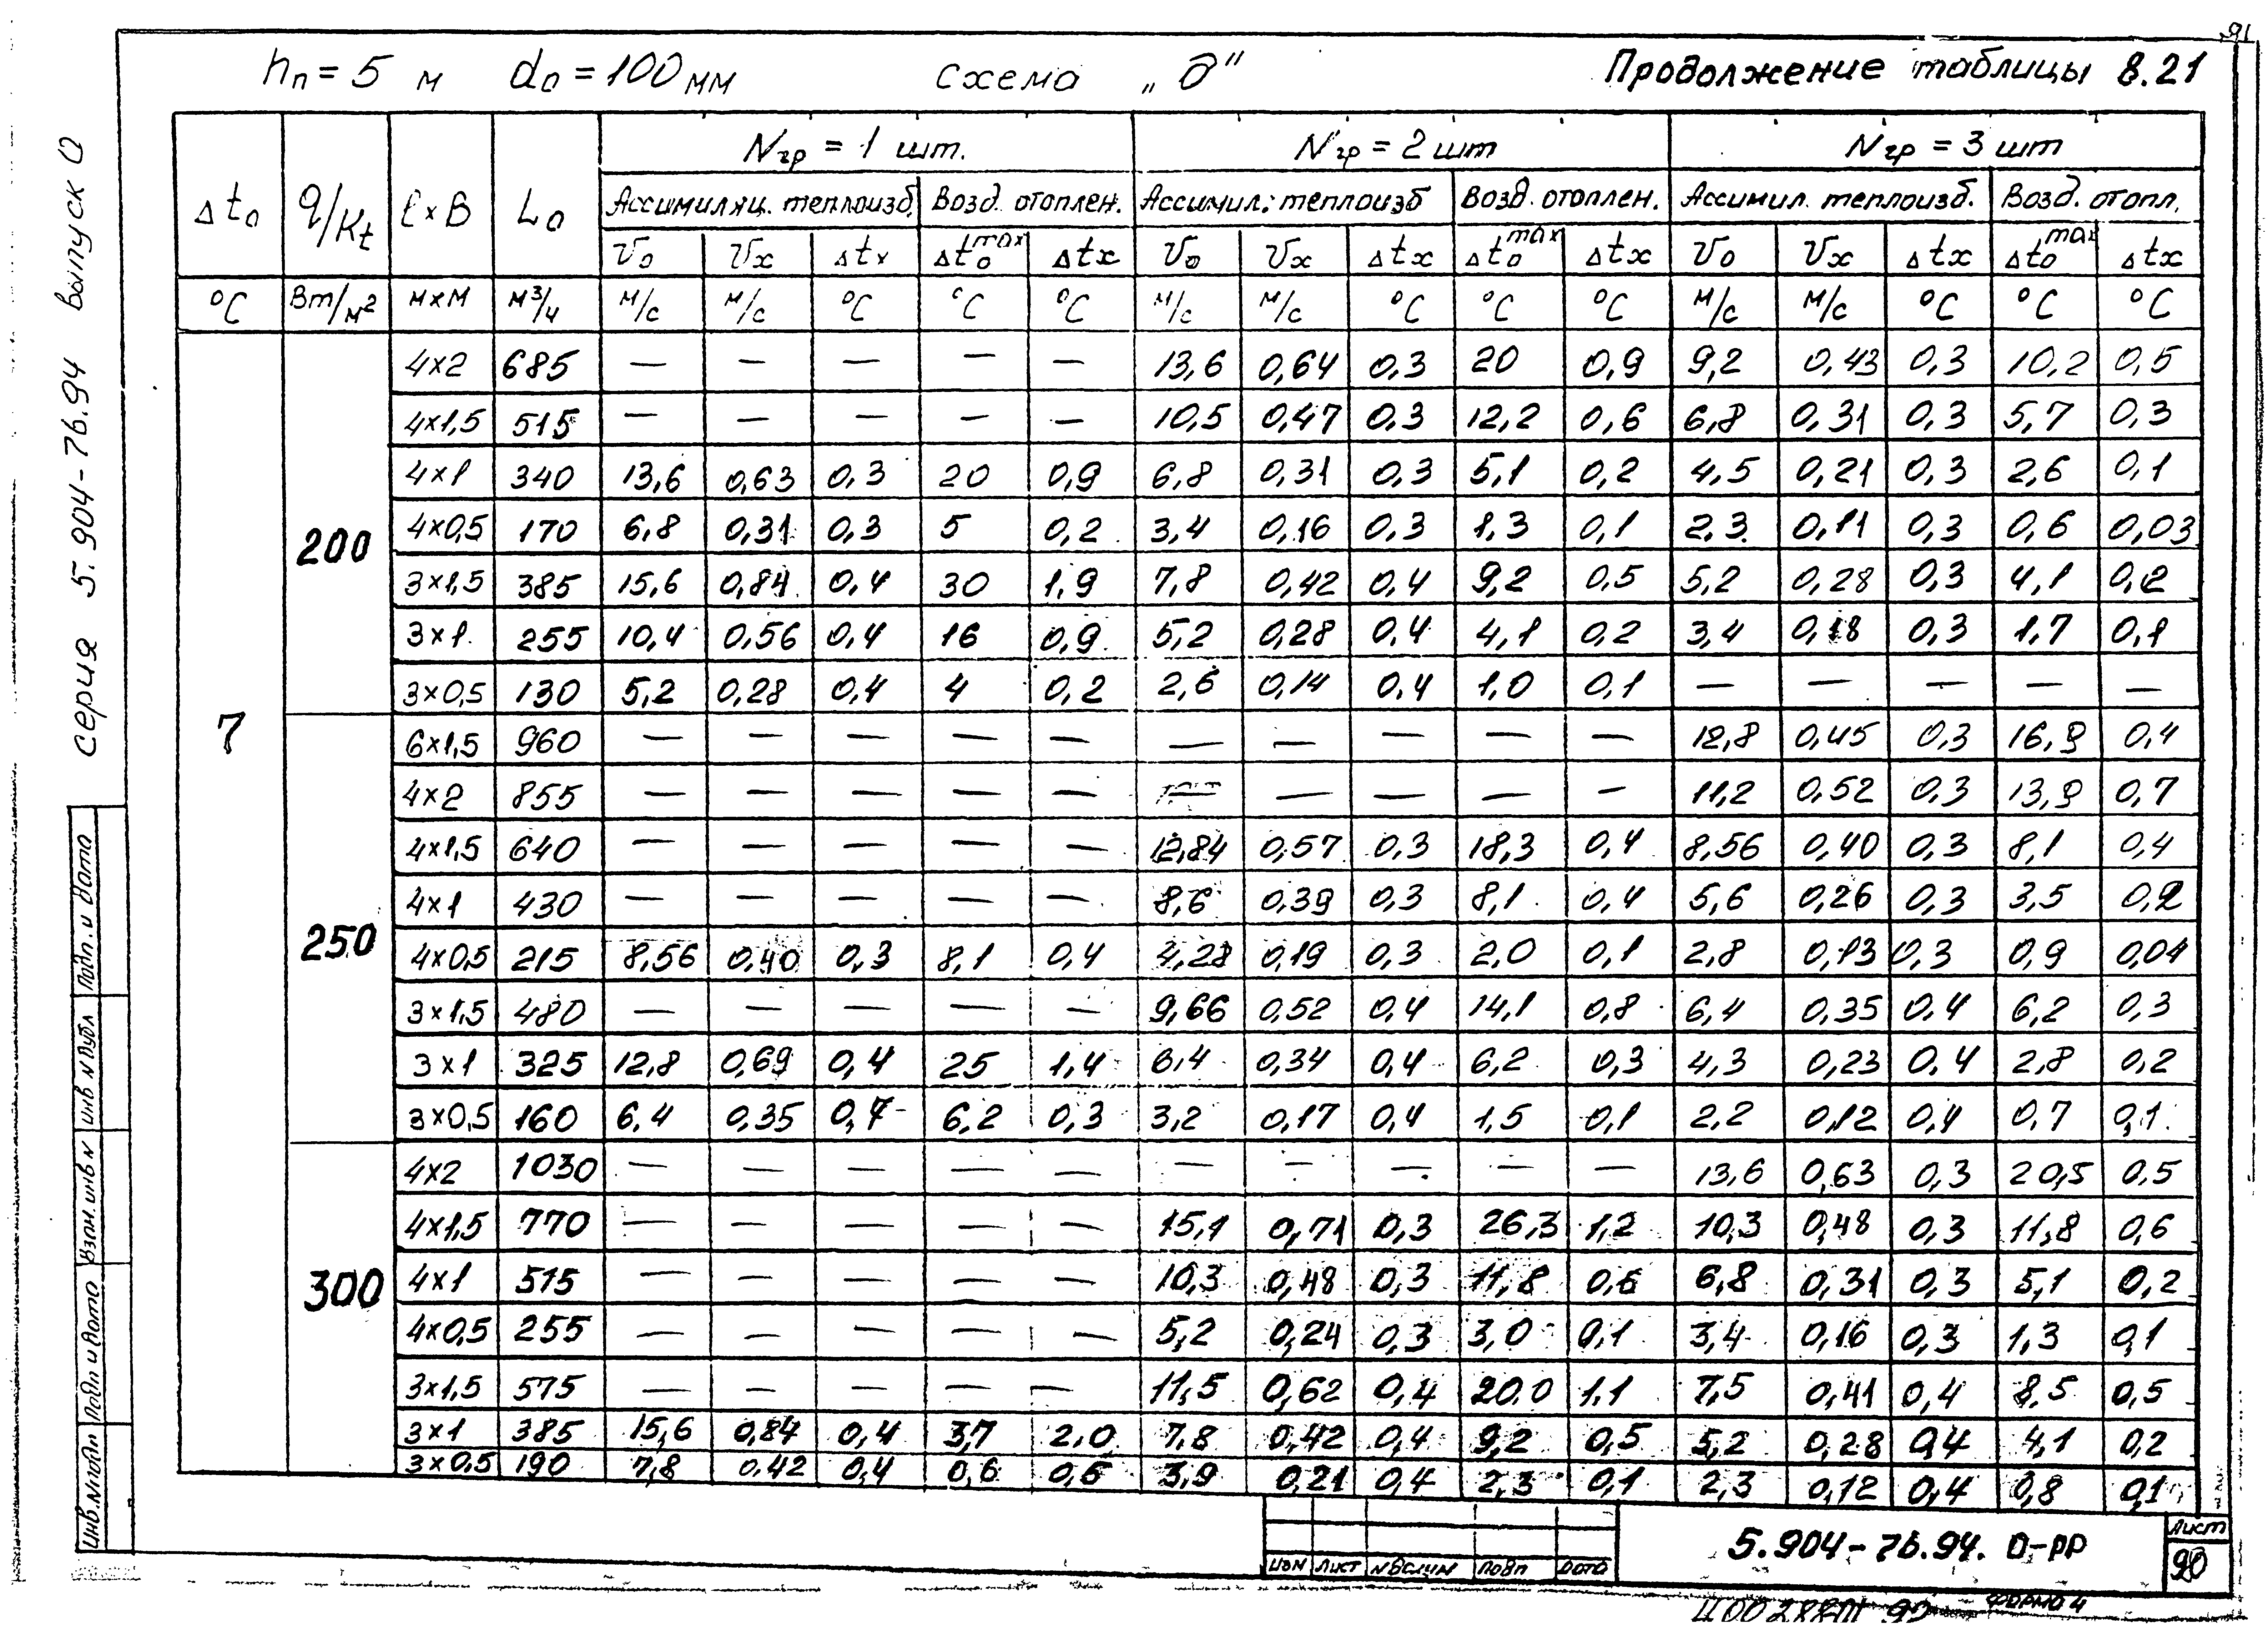 91
hп = 5 м   d₀ = 100 мм   схема „д"   Продолжение таблицы 8.21
серия 5.904-76.94 выпуск 0
Δt₀   q/Kt   l×B   L₀   Nгр = 1 шт.   Nгр = 2 шт   Nгр = 3 шт
Ассимиляц. теплоизб.   Возд. отоплен.   Ассимил. теплоизб   Возд. отоплен.   Ассимил. теплоизб.   Возд. отопл.
V₀   Vx   Δtx   Δt₀max   Δtx   V₀   Vx   Δtx   Δt₀max   Δtx   V₀   Vx   Δtx   Δt₀max   Δtx
°C   Вт/м²   м×м   м³/ч   м/с   м/с   °C   °C   °C   м/с   м/с   °C   °C   °C   м/с   м/с   °C   °C   °C
7
200
4×2   685   —   —   —   —   —   13,6   0,64   0,3   20   0,9   9,2   0,43   0,3   10,2   0,5
4×1,5   515   —   —   —   —   —   10,5   0,47   0,3   12,2   0,6   6,8   0,31   0,3   5,7   0,3
4×1   340   13,6   0,63   0,3   20   0,9   6,8   0,31   0,3   5,1   0,2   4,5   0,21   0,3   2,6   0,1
4×0,5   170   6,8   0,31   0,3   5   0,2   3,4   0,16   0,3   1,3   0,1   2,3   0,11   0,3   0,6   0,03
3×1,5   385   15,6   0,84   0,4   30   1,9   7,8   0,42   0,4   9,2   0,5   5,2   0,28   0,3   4,1   0,2
3×1   255   10,4   0,56   0,4   16   0,9   5,2   0,28   0,4   4,1   0,2   3,4   0,18   0,3   1,7   0,1
3×0,5   130   5,2   0,28   0,4   4   0,2   2,6   0,14   0,4   1,0   0,1   —   —   —   —   —
250
6×1,5   960   —   —   —   —   —   —   —   —   —   —   12,8   0,45   0,3   16,9   0,4
4×2   855   —   —   —   —   —   —   —   —   —   —   11,2   0,52   0,3   13,9   0,7
4×1,5   640   —   —   —   —   —   12,84   0,57   0,3   18,3   0,4   8,56   0,40   0,3   8,1   0,4
4×1   430   —   —   —   —   —   8,6   0,39   0,3   8,1   0,4   5,6   0,26   0,3   3,5   0,2
4×0,5   215   8,56   0,40   0,3   8,1   0,4   4,28   0,19   0,3   2,0   0,1   2,8   0,13   0,3   0,9   0,04
3×1,5   480   —   —   —   —   —   9,66   0,52   0,4   14,1   0,8   6,4   0,35   0,4   6,2   0,3
3×1   325   12,8   0,69   0,4   25   1,4   6,4   0,34   0,4   6,2   0,3   4,3   0,23   0,4   2,8   0,2
3×0,5   160   6,4   0,35   0,7   6,2   0,3   3,2   0,17   0,4   1,5   0,1   2,2   0,12   0,4   0,7   0,1
300
4×2   1030   —   —   —   —   —   —   —   —   —   —   13,6   0,63   0,3   20,5   0,5
4×1,5   770   —   —   —   —   —   15,1   0,71   0,3   26,3   1,2   10,3   0,48   0,3   11,8   0,6
4×1   515   —   —   —   —   —   10,3   0,48   0,3   11,8   0,6   6,8   0,31   0,3   5,1   0,2
4×0,5   255   —   —   —   —   —   5,2   0,24   0,3   3,0   0,1   3,4   0,16   0,3   1,3   0,1
3×1,5   575   —   —   —   —   —   11,5   0,62   0,4   20,0   1,1   7,5   0,41   0,4   8,5   0,5
3×1   385   15,6   0,84   0,4   37   2,0   7,8   0,42   0,4   9,2   0,5   5,2   0,28   0,4   4,1   0,2
3×0,5   190   7,8   0,42   0,4   0,6   0,6   3,9   0,21   0,4   2,3   0,1   2,3   0,12   0,4   0,8   0,1
Инв.№подл   Подп и дата   Взам.инв N   инв N дубл   Подп. и дата
изм   лист   №   подп   дата
5.904-76.94. 0-РР
лист
90
формо 4